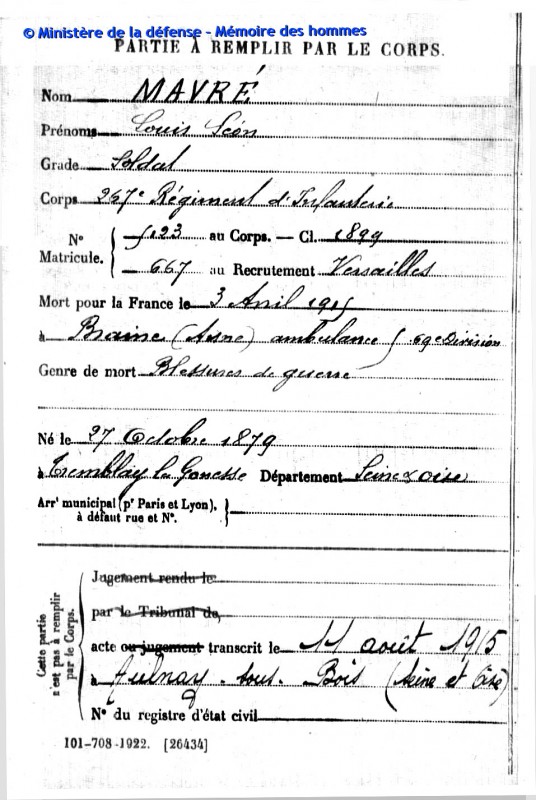 © Ministère de la défense - Mémoire des hommes
PARTIE À REMPLIR PAR LE CORPS.
Nom MAVRÉ
Prénoms Louis Léon
Grade Soldat
Corps 267e Régiment d'Infanterie
N° Matricule. { 5123 au Corps. — Cl. 1899
667 au Recrutement Versailles
Mort pour la France le 3 Avril 1915
à Braine (Aisne) ambulance 5 69e Division
Genre de mort Blessures de guerre
Né le 27 Octobre 1879
à Tremblay les Gonesse Département Seine & Oise
Arrt municipal (pr Paris et Lyon), à défaut rue et N°. }
Cette partie n'est pas à remplir par le Corps.
Jugement rendu le
par le Tribunal de
acte ou jugement transcrit le 11 août 1915
à Aulnay-sous-Bois (Seine et Oise)
N° du registre d'état civil
101-708-1922. [26434]